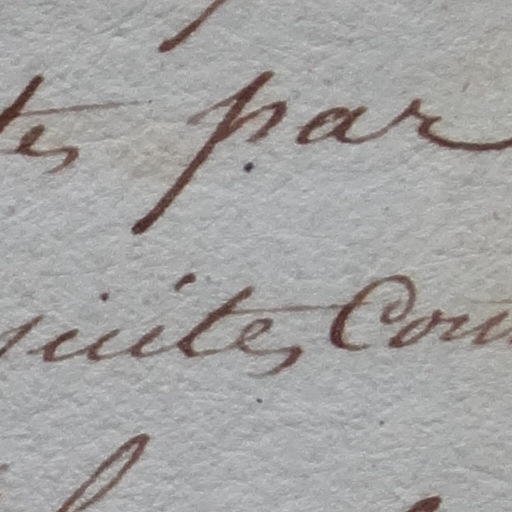 tes par
uites Cou